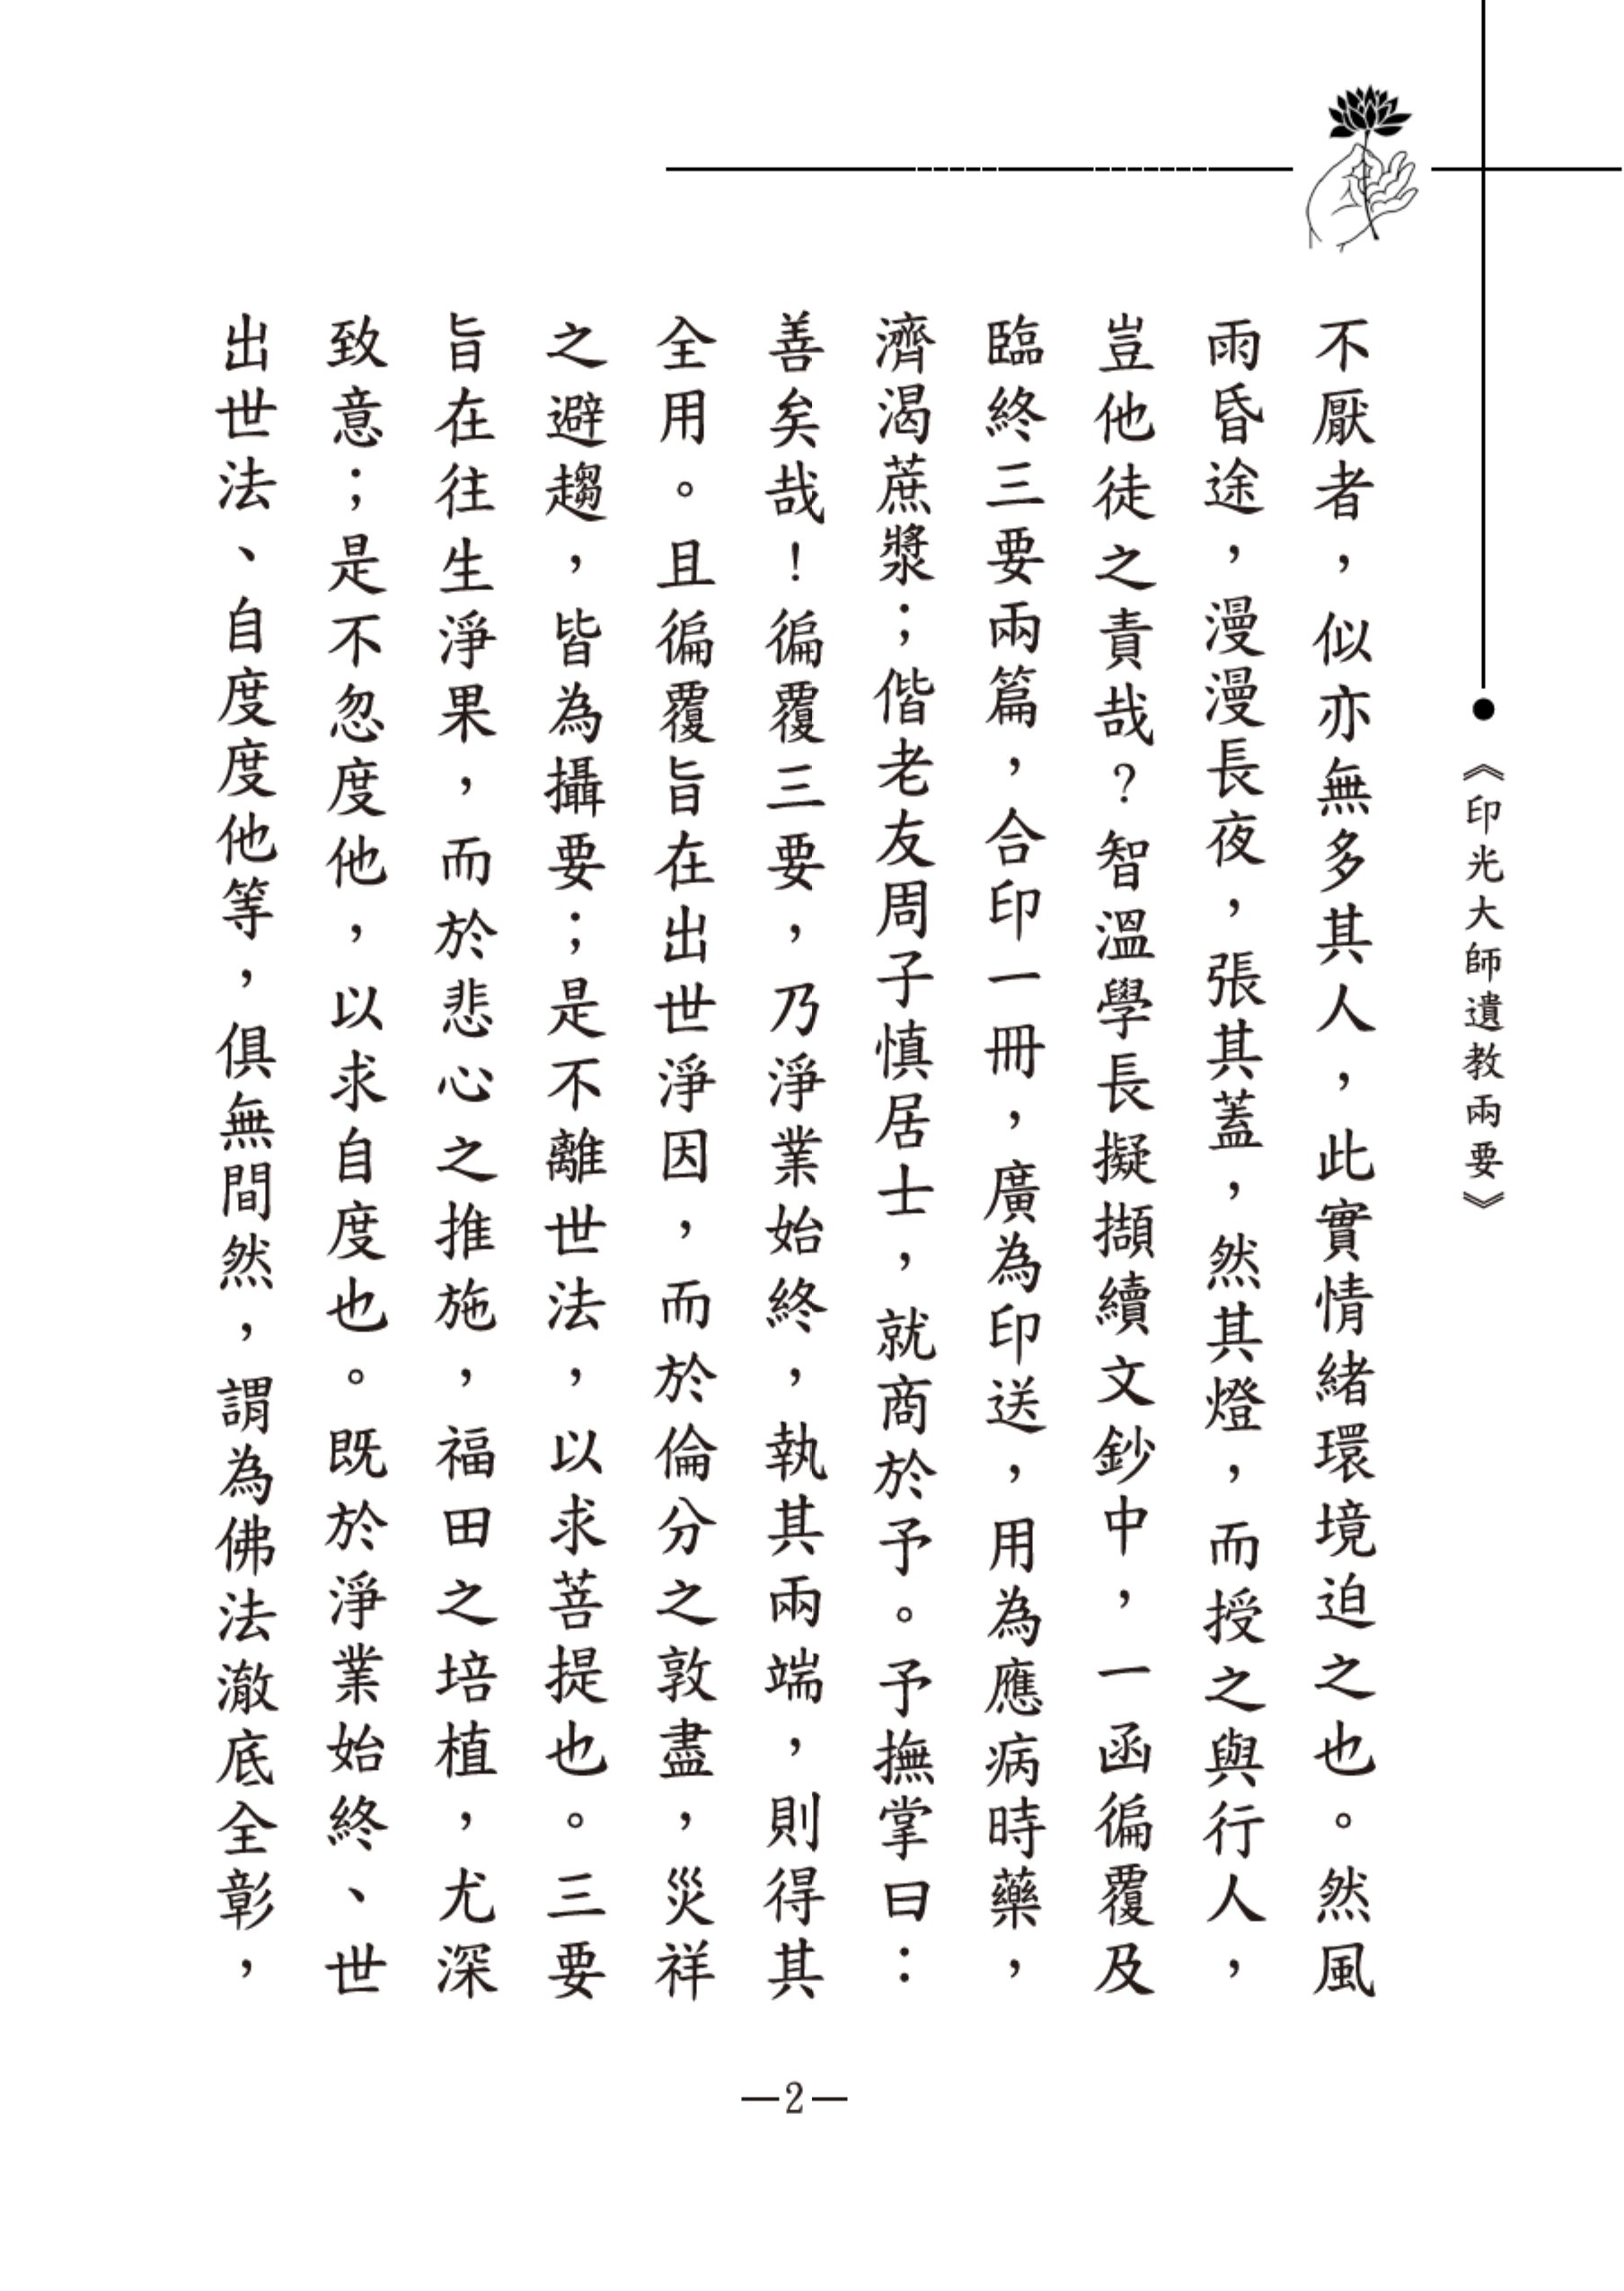 《印光大師遺教兩要》
不厭者，似亦無多其人，此實情緒環境迫之也。然風
雨昏途，漫漫長夜，張其蓋，然其燈，而授之與行人，
豈他徒之責哉？智溫學長擬擷續文鈔中，一函徧覆及
臨終三要兩篇，合印一冊，廣為印送，用為應病時藥，
濟渴蔗漿；偕老友周子慎居士，就商於予。予撫掌曰：
善矣哉！徧覆三要，乃淨業始終，執其兩端，則得其
全用。且徧覆旨在出世淨因，而於倫分之敦盡，災祥
之避趨，皆為攝要；是不離世法，以求菩提也。三要
旨在往生淨果，而於悲心之推施，福田之培植，尤深
致意；是不忽度他，以求自度也。既於淨業始終、世
出世法、自度度他等，俱無間然，謂為佛法澈底全彰，
—2—